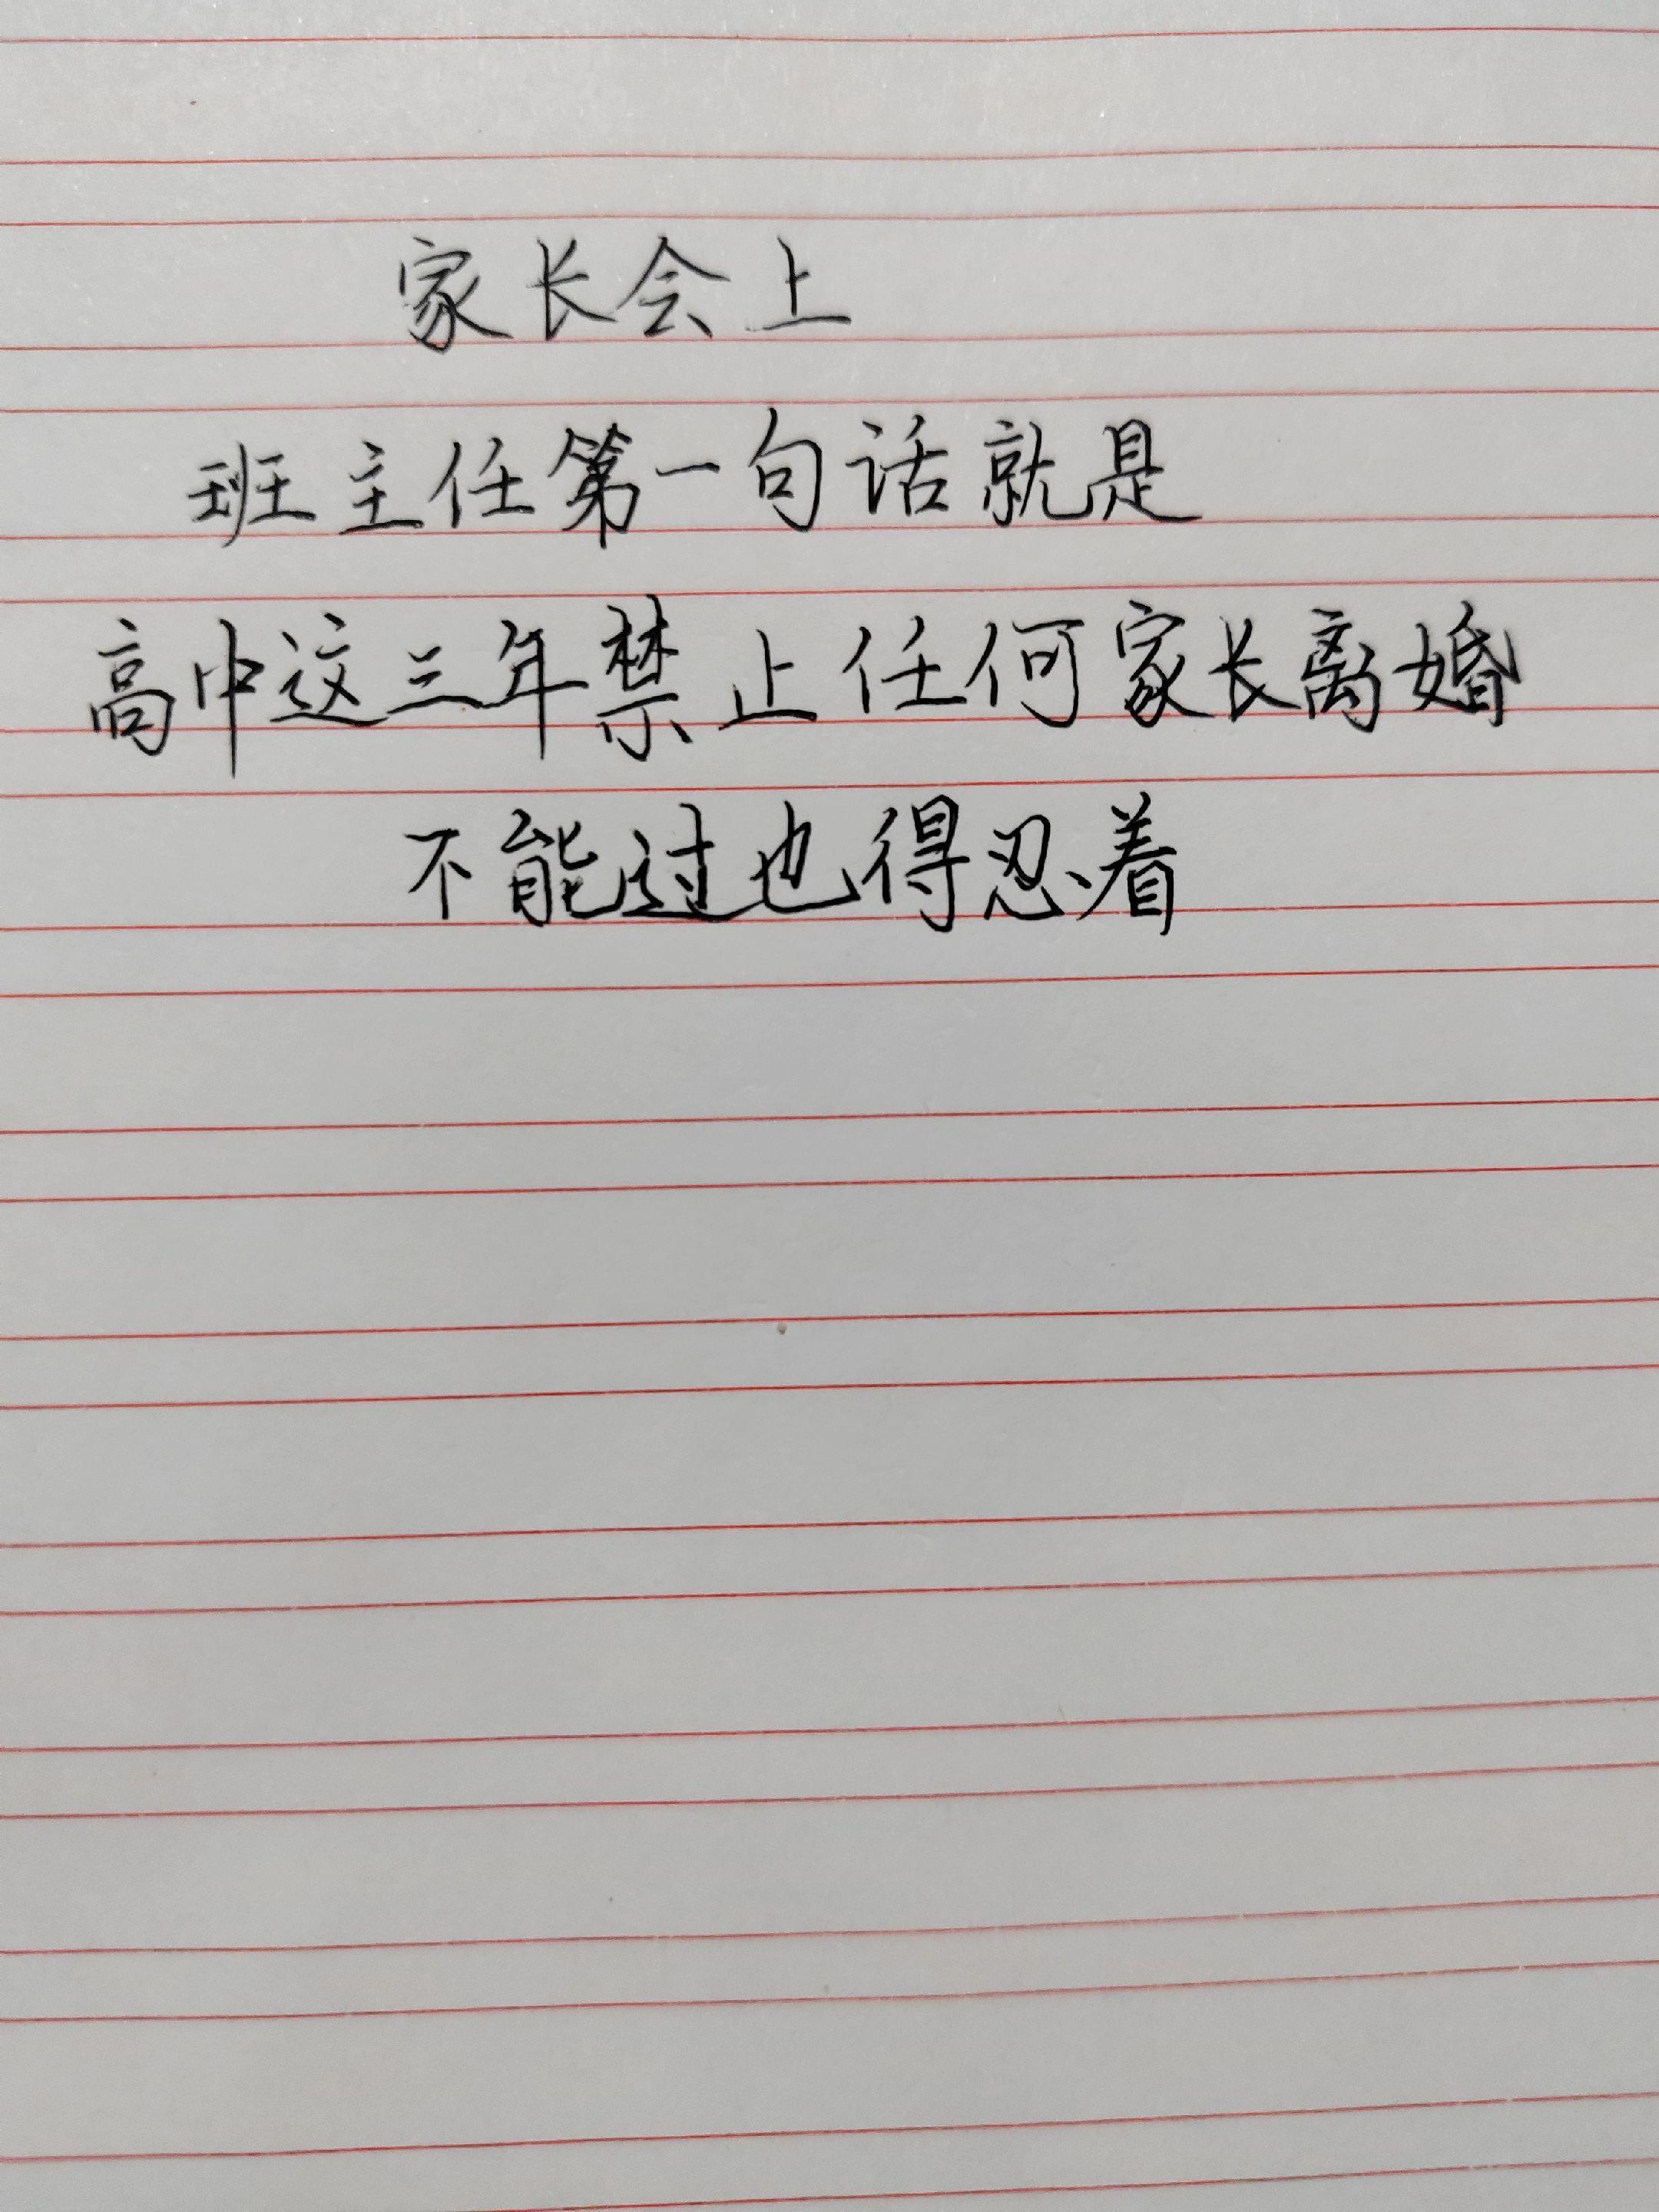 家长会上
班主任第一句话就是
高中这三年禁止任何家长离婚
不能过也得忍着